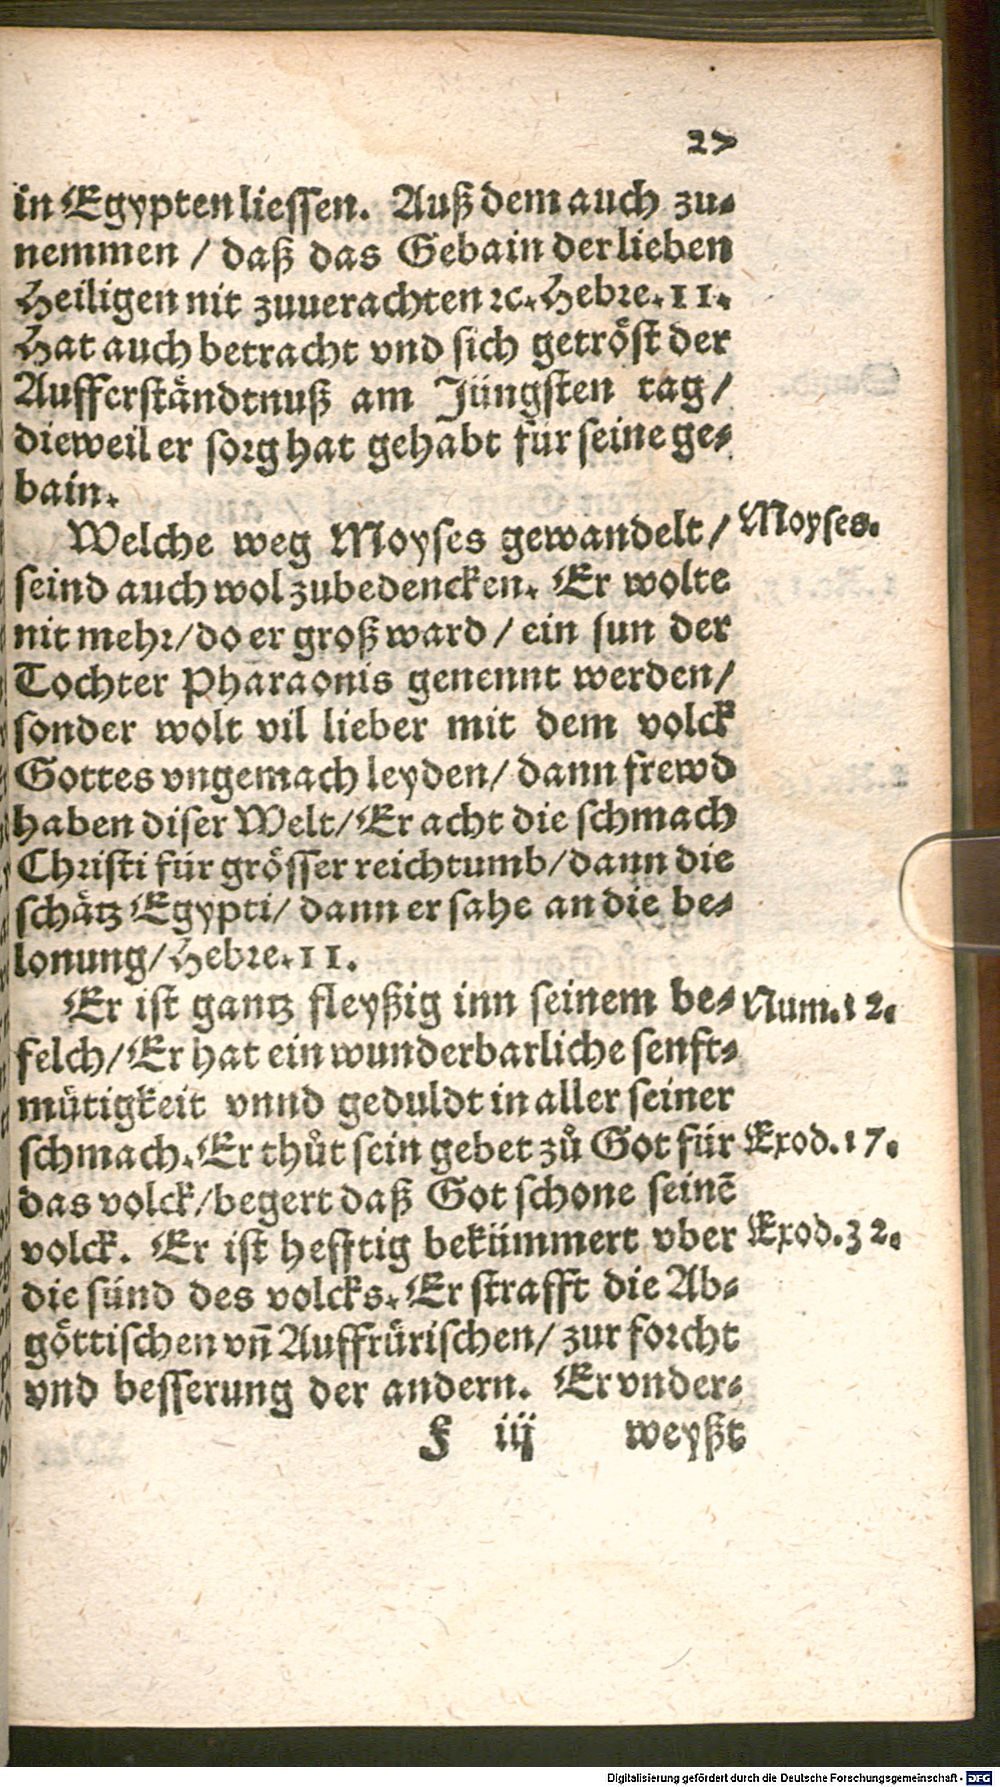 27
in Egypten liessen. Auß dem auch zu-
nemmen / daß das Gebain der lieben
Heiligen nit zuuerachten ꝛc. Hebre. 11.
Hat auch betracht vnd sich getröst der
Aufferständtnuß am Jüngsten tag /
dieweil er sorg hat gehabt für seine ge-
bain.
Welche weg Moyses gewandelt / Moyses.
seind auch wol zubedencken. Er wolte
nit mehr / do er groß ward / ein sun der
Tochter Pharaonis genennt werden /
sonder wolt vil lieber mit dem volck
Gottes vngemach leyden / dann frewd
haben diser Welt / Er acht die schmach
Christi für grösser reichtumb / dann die
schätz Egypti / dann er sahe an die be-
lonung / Hebre. 11.
Er ist gantz fleyßig inn seinem be- Num. 12.
felch / Er hat ein wunderbarliche senft-
mütigkeit vnnd geduldt in aller seiner
schmach. Er thůt sein gebet zů Got für Exod. 17.
das volck / begert daß Got schone seinẽ
volck. Er ist hefftig bekümmert vber Exod. 32.
die sünd des volcks. Er strafft die Ab-
göttischen vñ Auffrürischen / zur forcht
vnd besserung der andern. Er vnder-
F iij weyßt
Digitalisierung gefördert durch die Deutsche Forschungsgemeinschaft - DFG